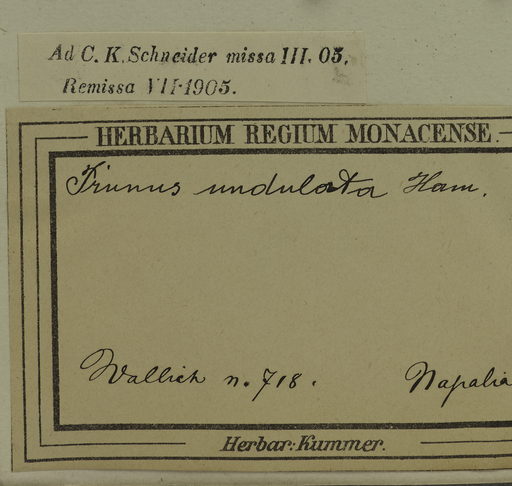 Ad C. K. Schneider missa III. 05.
Remissa VII·1905.
HERBARIUM REGIUM MONACENSE.
Prunus undulata Ham.
Wallich n. 718. Napalia
Herbar: Kummer.